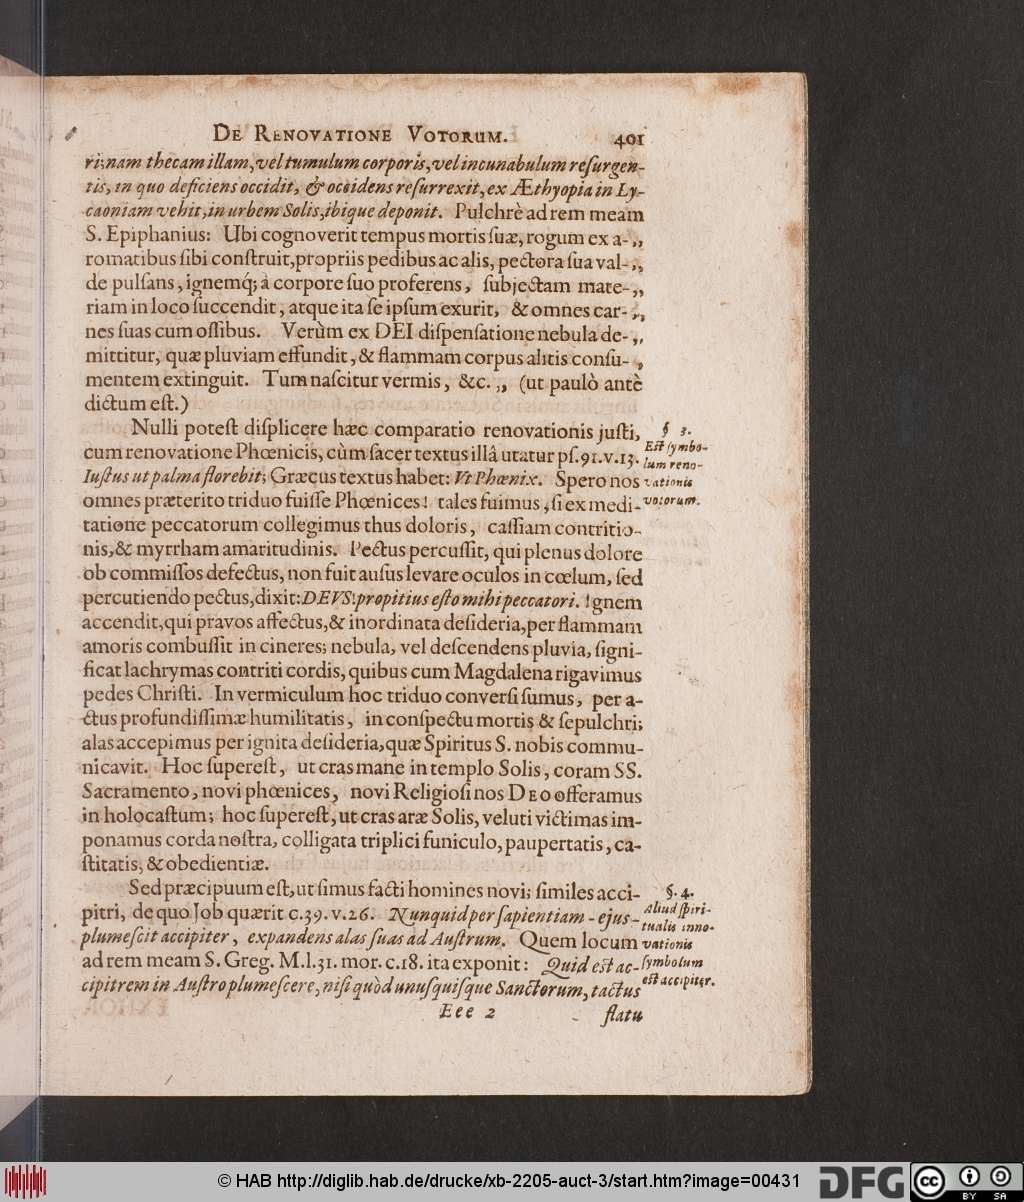 DE RENOVATIONE VOTORUM. 401
ris; nam thecam illam, vel tumulum corporis, vel incunabulum reſurgen-
tis, in quo deficiens occidit, & occidens reſurrexit, ex Æthyopia in Ly-
caoniam vehit, in urbem Solis, ibique deponit. Pulchrè ad rem meam
S. Epiphanius: Ubi cognoverit tempus mortis ſuæ, rogum ex a- „
romatibus ſibi conſtruit, propriis pedibus ac alis, pectora ſua val- „
de pulſans, ignemq́; à corpore ſuo proferens, ſubjectam mate- „
riam in loco ſuccendit, atque ita ſe ipſum exurit, & omnes car- „
nes ſuas cum oſſibus. Verùm ex DEI diſpenſatione nebula de- „
mittitur, quæ pluviam effundit, & flammam corpus alitis conſu- „
mentem extinguit. Tum naſcitur vermis, &c. „ (ut paulò antè
dictum eſt.)
Nulli poteſt diſplicere hæc comparatio renovationis juſti, § 3.
cum renovatione Phœnicis, cùm ſacer textus illâ utatur pſ. 91. v. 13. Eſt ſymbo-
Iuſtus ut palma florebit; Græcus textus habet: Vt Phœnix. Spero nos lum reno-
vationis
omnes præterito triduo fuiſſe Phœnices! tales fuimus, ſi ex medi- votorum.
tatione peccatorum collegimus thus doloris, caſſiam contritio-
nis, & myrrham amaritudinis. Pectus percuſſit, qui plenus dolore
ob commiſſos defectus, non fuit auſus levare oculos in cœlum, ſed
percutiendo pectus, dixit: DEVS! propitius eſto mihi peccatori. Ignem
accendit, qui pravos affectus, & inordinata deſideria, per flammam
amoris combuſſit in cineres; nebula, vel deſcendens pluvia, ſigni-
ficat lachrymas contriti cordis, quibus cum Magdalena rigavimus
pedes Chriſti. In vermiculum hoc triduo converſi ſumus, per a-
ctus profundiſſimæ humilitatis, in conſpectu mortis & ſepulchri;
alas accepimus per ignita deſideria, quæ Spiritus S. nobis commu-
nicavit. Hoc ſupereſt, ut cras mane in templo Solis, coram SS.
Sacramento, novi phœnices, novi Religioſi nos DEO offeramus
in holocaſtum; hoc ſupereſt, ut cras aræ Solis, veluti victimas im-
ponamus corda noſtra, colligata triplici funiculo, paupertatis, ca-
ſtitatis, & obedientiæ.
Sed præcipuum eſt, ut ſimus facti homines novi; ſimiles acci- §. 4.
pitri, de quo Job quærit c. 39. v. 26. Nunquid per ſapientiam - ejus - Aliud ſpiri-
tualis inno-
plumeſcit accipiter, expandens alas ſuas ad Auſtrum. Quem locum vationis
ad rem meam S. Greg. M. l. 31. mor. c. 18. ita exponit: Quid eſt ac- ſymbolum
cipitrem in Auſtro plumeſcere, niſi quòd unuſquiſque Sanctorum, tactus eſt accipiter.
Eee 2 flatu
© HAB http://diglib.hab.de/drucke/xb-2205-auct-3/start.htm?image=00431
DFG
cc BY SA